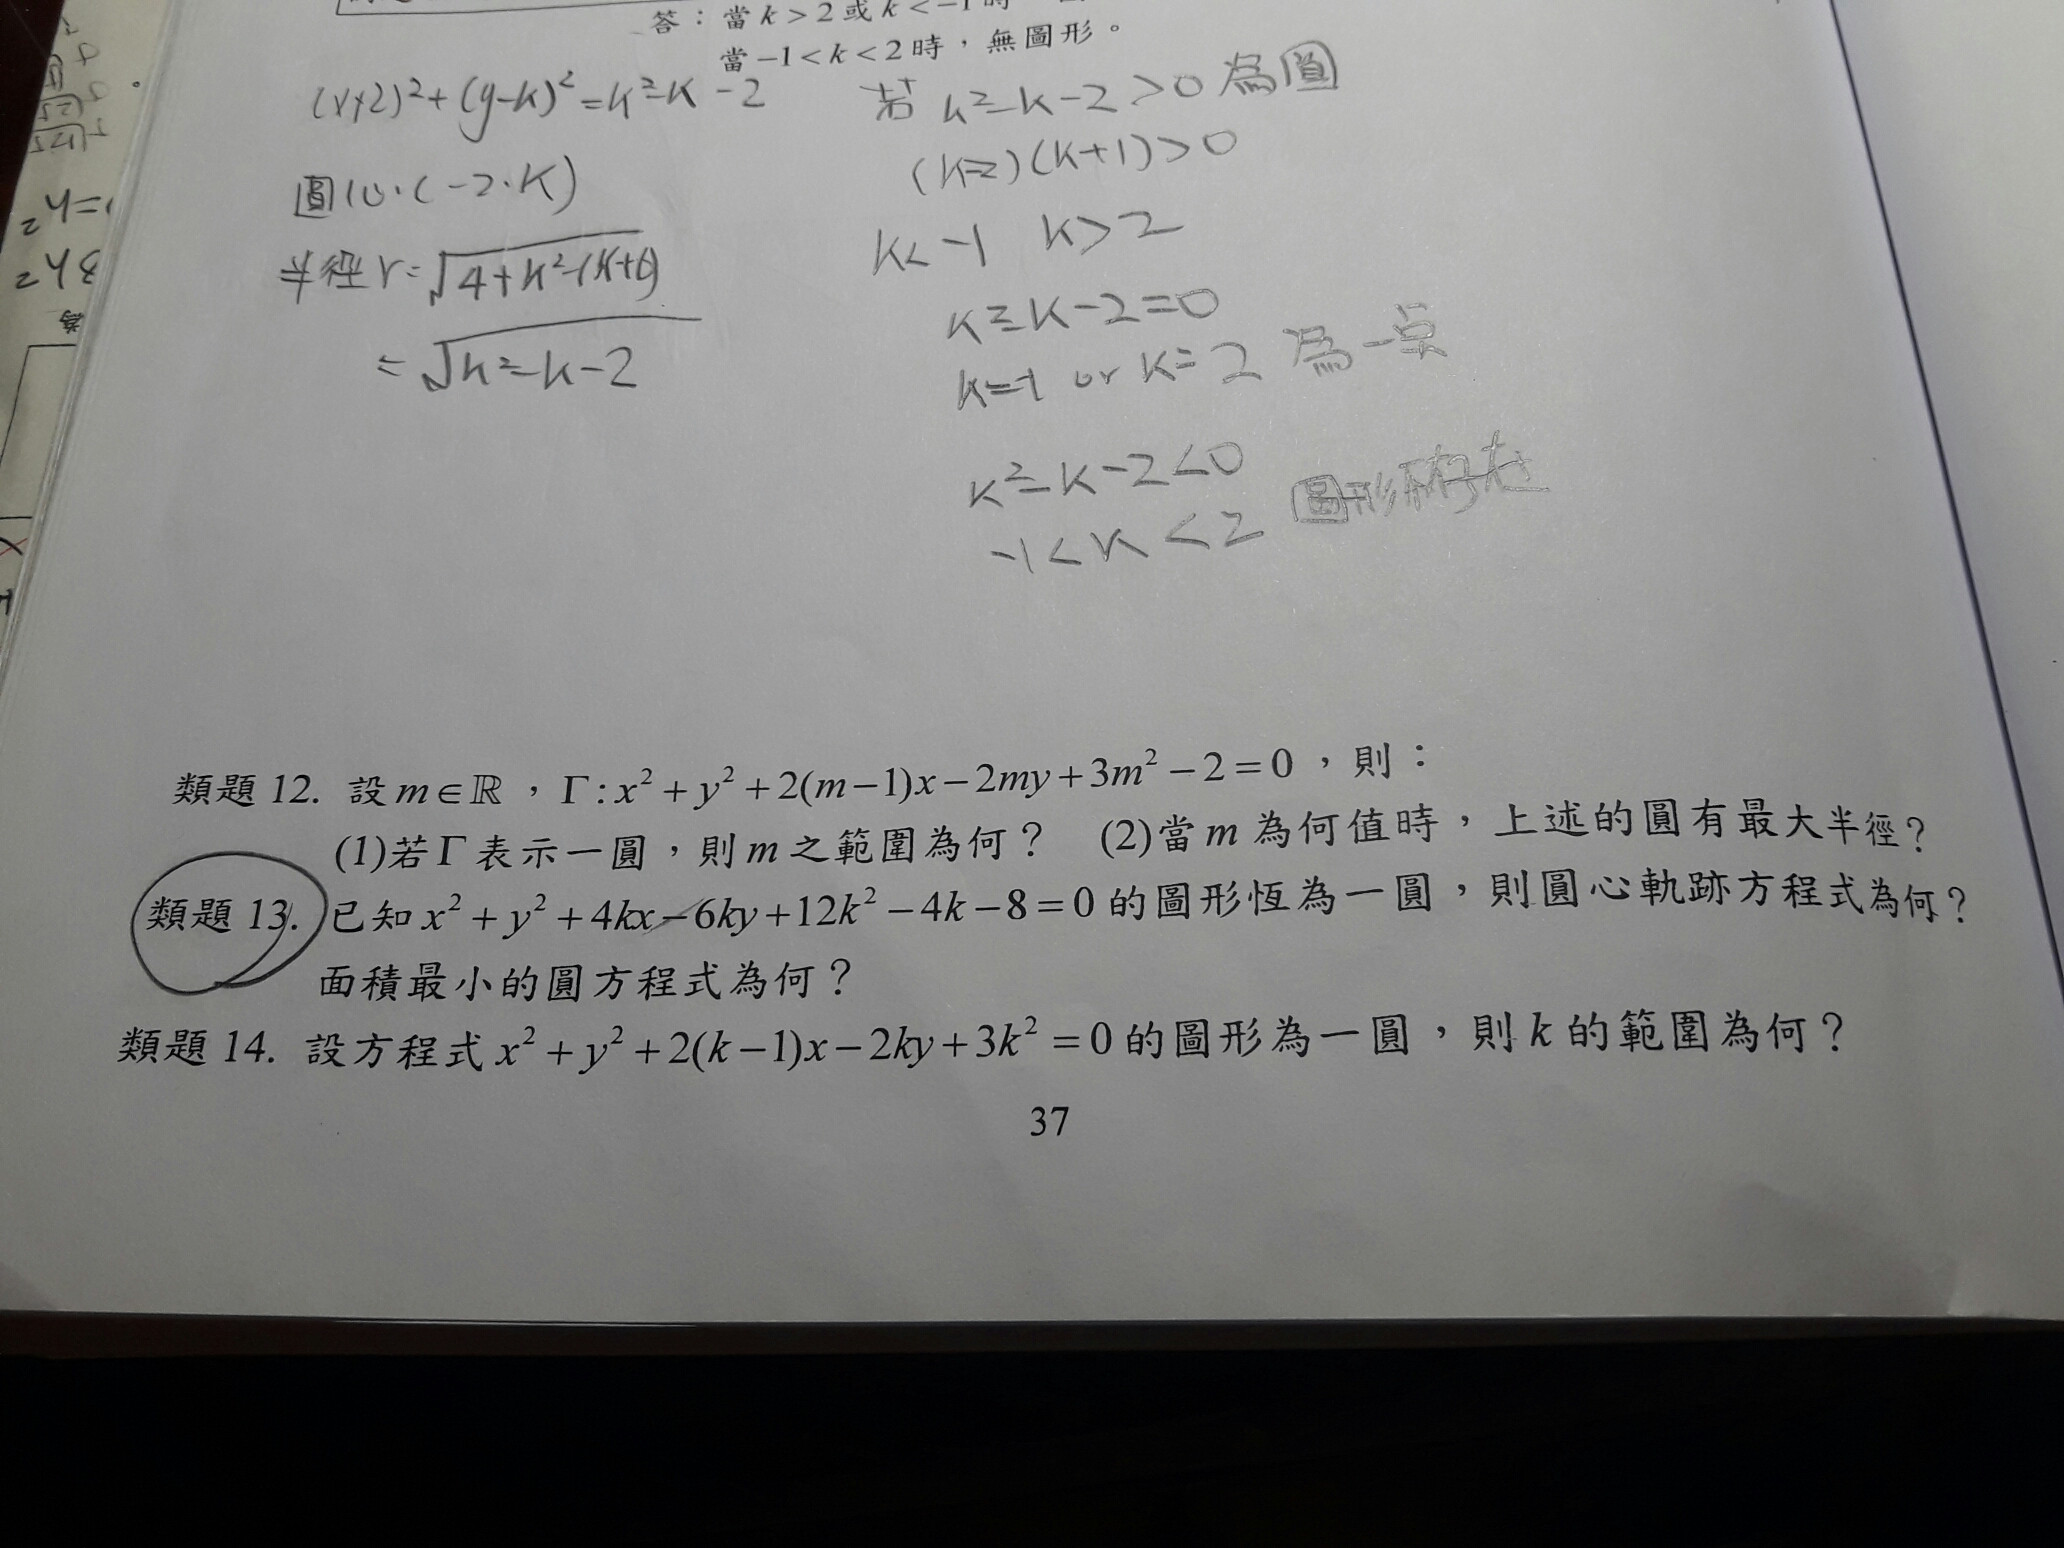 答：當 k > 2 或 k < −1 時
當 −1 < k < 2 時，無圖形。
(x+2)²+(y-k)²=k²-k-2
圓心(-2,k)
半徑r=√4+k²-(k+6)
=√k²-k-2
若 k²-k-2>0 為圓
(k-2)(k+1)>0
k<-1 k>2
k²-k-2=0
k=-1 or k=2 為一点
k²-k-2<0
-1<k<2 圖形不存在
類題 12. 設 m∈ℝ，Γ: x²+y²+2(m−1)x−2my+3m²−2=0，則：
(1)若 Γ 表示一圓，則 m 之範圍為何？ (2)當 m 為何值時，上述的圓有最大半徑？
類題 13. 已知 x²+y²+4kx−6ky+12k²−4k−8=0 的圖形恆為一圓，則圓心軌跡方程式為何？
面積最小的圓方程式為何？
類題 14. 設方程式 x²+y²+2(k−1)x−2ky+3k²=0 的圖形為一圓，則 k 的範圍為何？
37